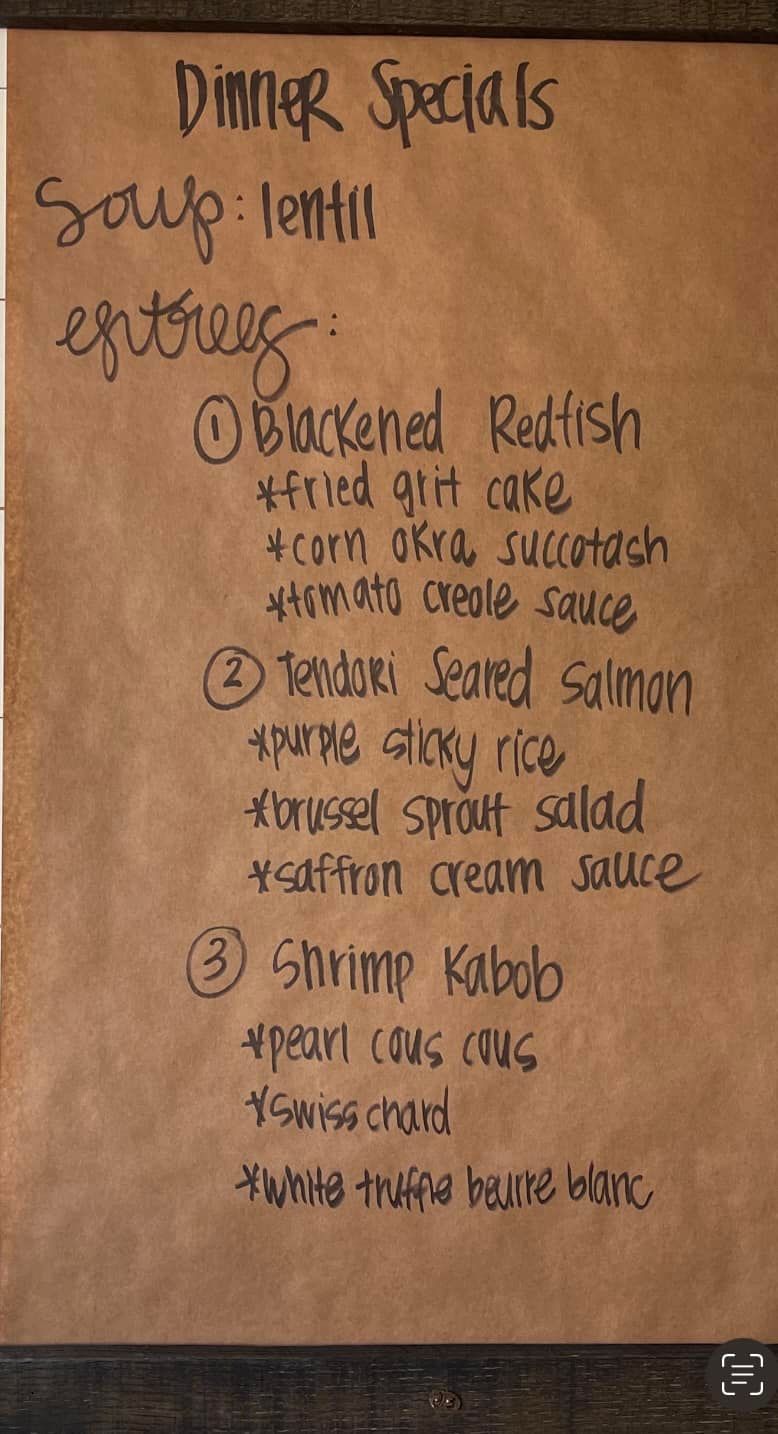 Dinner Specials
Soup: lentil
entrees:
① Blackened Redfish
*fried grit cake
*corn okra succotash
*tomato creole sauce
② Tendori Seared Salmon
*purple sticky rice
*brussel sprout salad
*saffron cream sauce
③ Shrimp Kabob
*pearl cous cous
*swiss chard
*white truffle beurre blanc